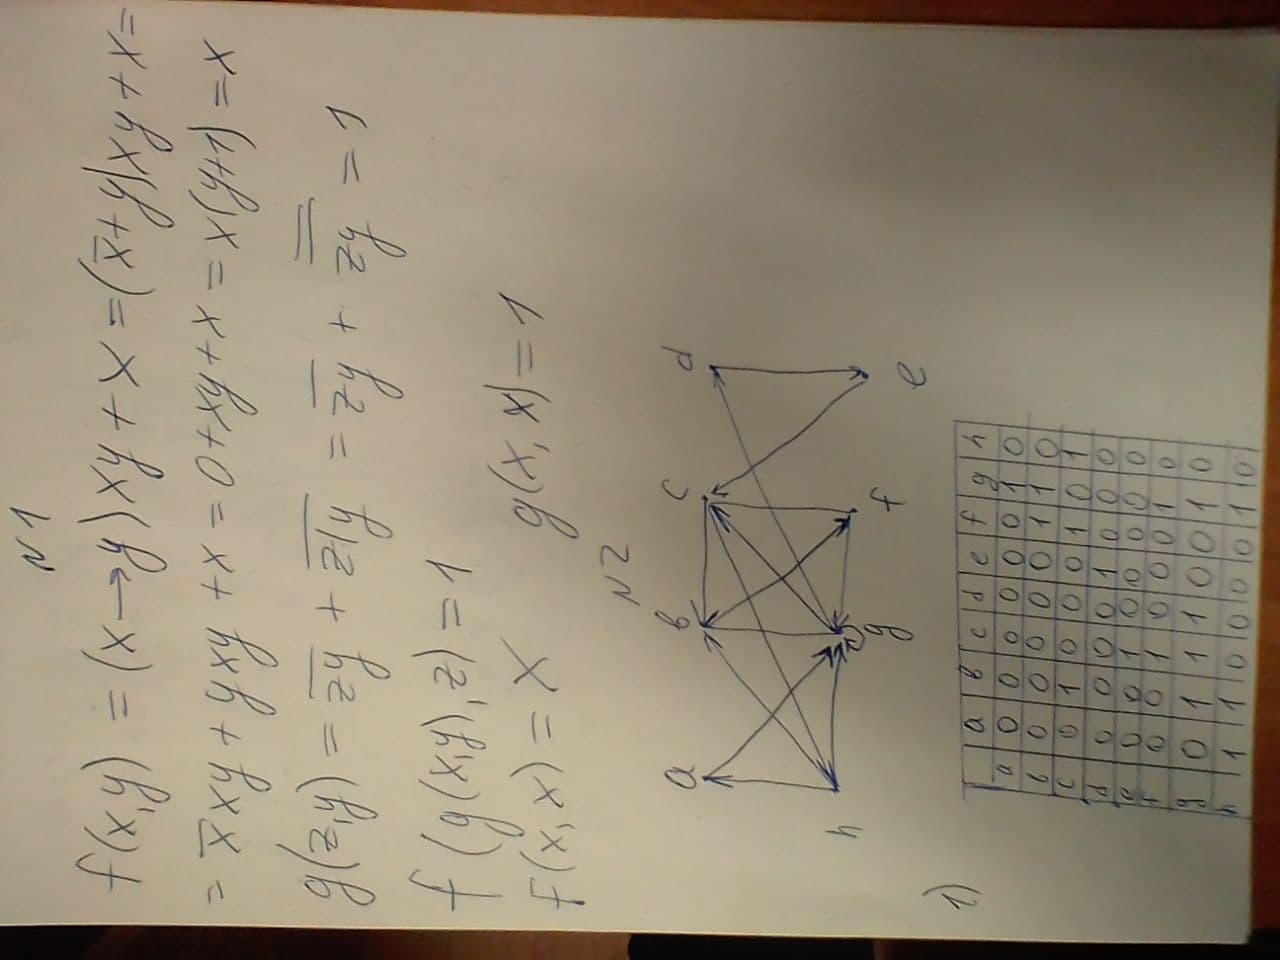 N1
f(x,y) = (x→y)xy + x = (x̅+y)xy + x =
= x̅xy + yxy + x = 0+xy+x = x(y+1) = x
g(z,y) = z̅y̅ + z̅|̅y̅ = z̅y̅ + z̿y̿ = 1
f(g(x,y),z) = 1
f(x,x) = x g(x,x) = 1
N2
a b c d
h g f e
1)
a b c d e f g h
a 0 0 0 0 0 0 1 0
b 0 0 0 0 0 1 1 0
c 0 1 0 0 0 1 0 1
d 0 0 0 0 1 0 0 0
e 0 0 1 0 0 0 0 0
f 0 0 1 0 0 0 1 0
g 0 1 1 1 0 0 1 0
h 1 1 0 0 0 0 1 0